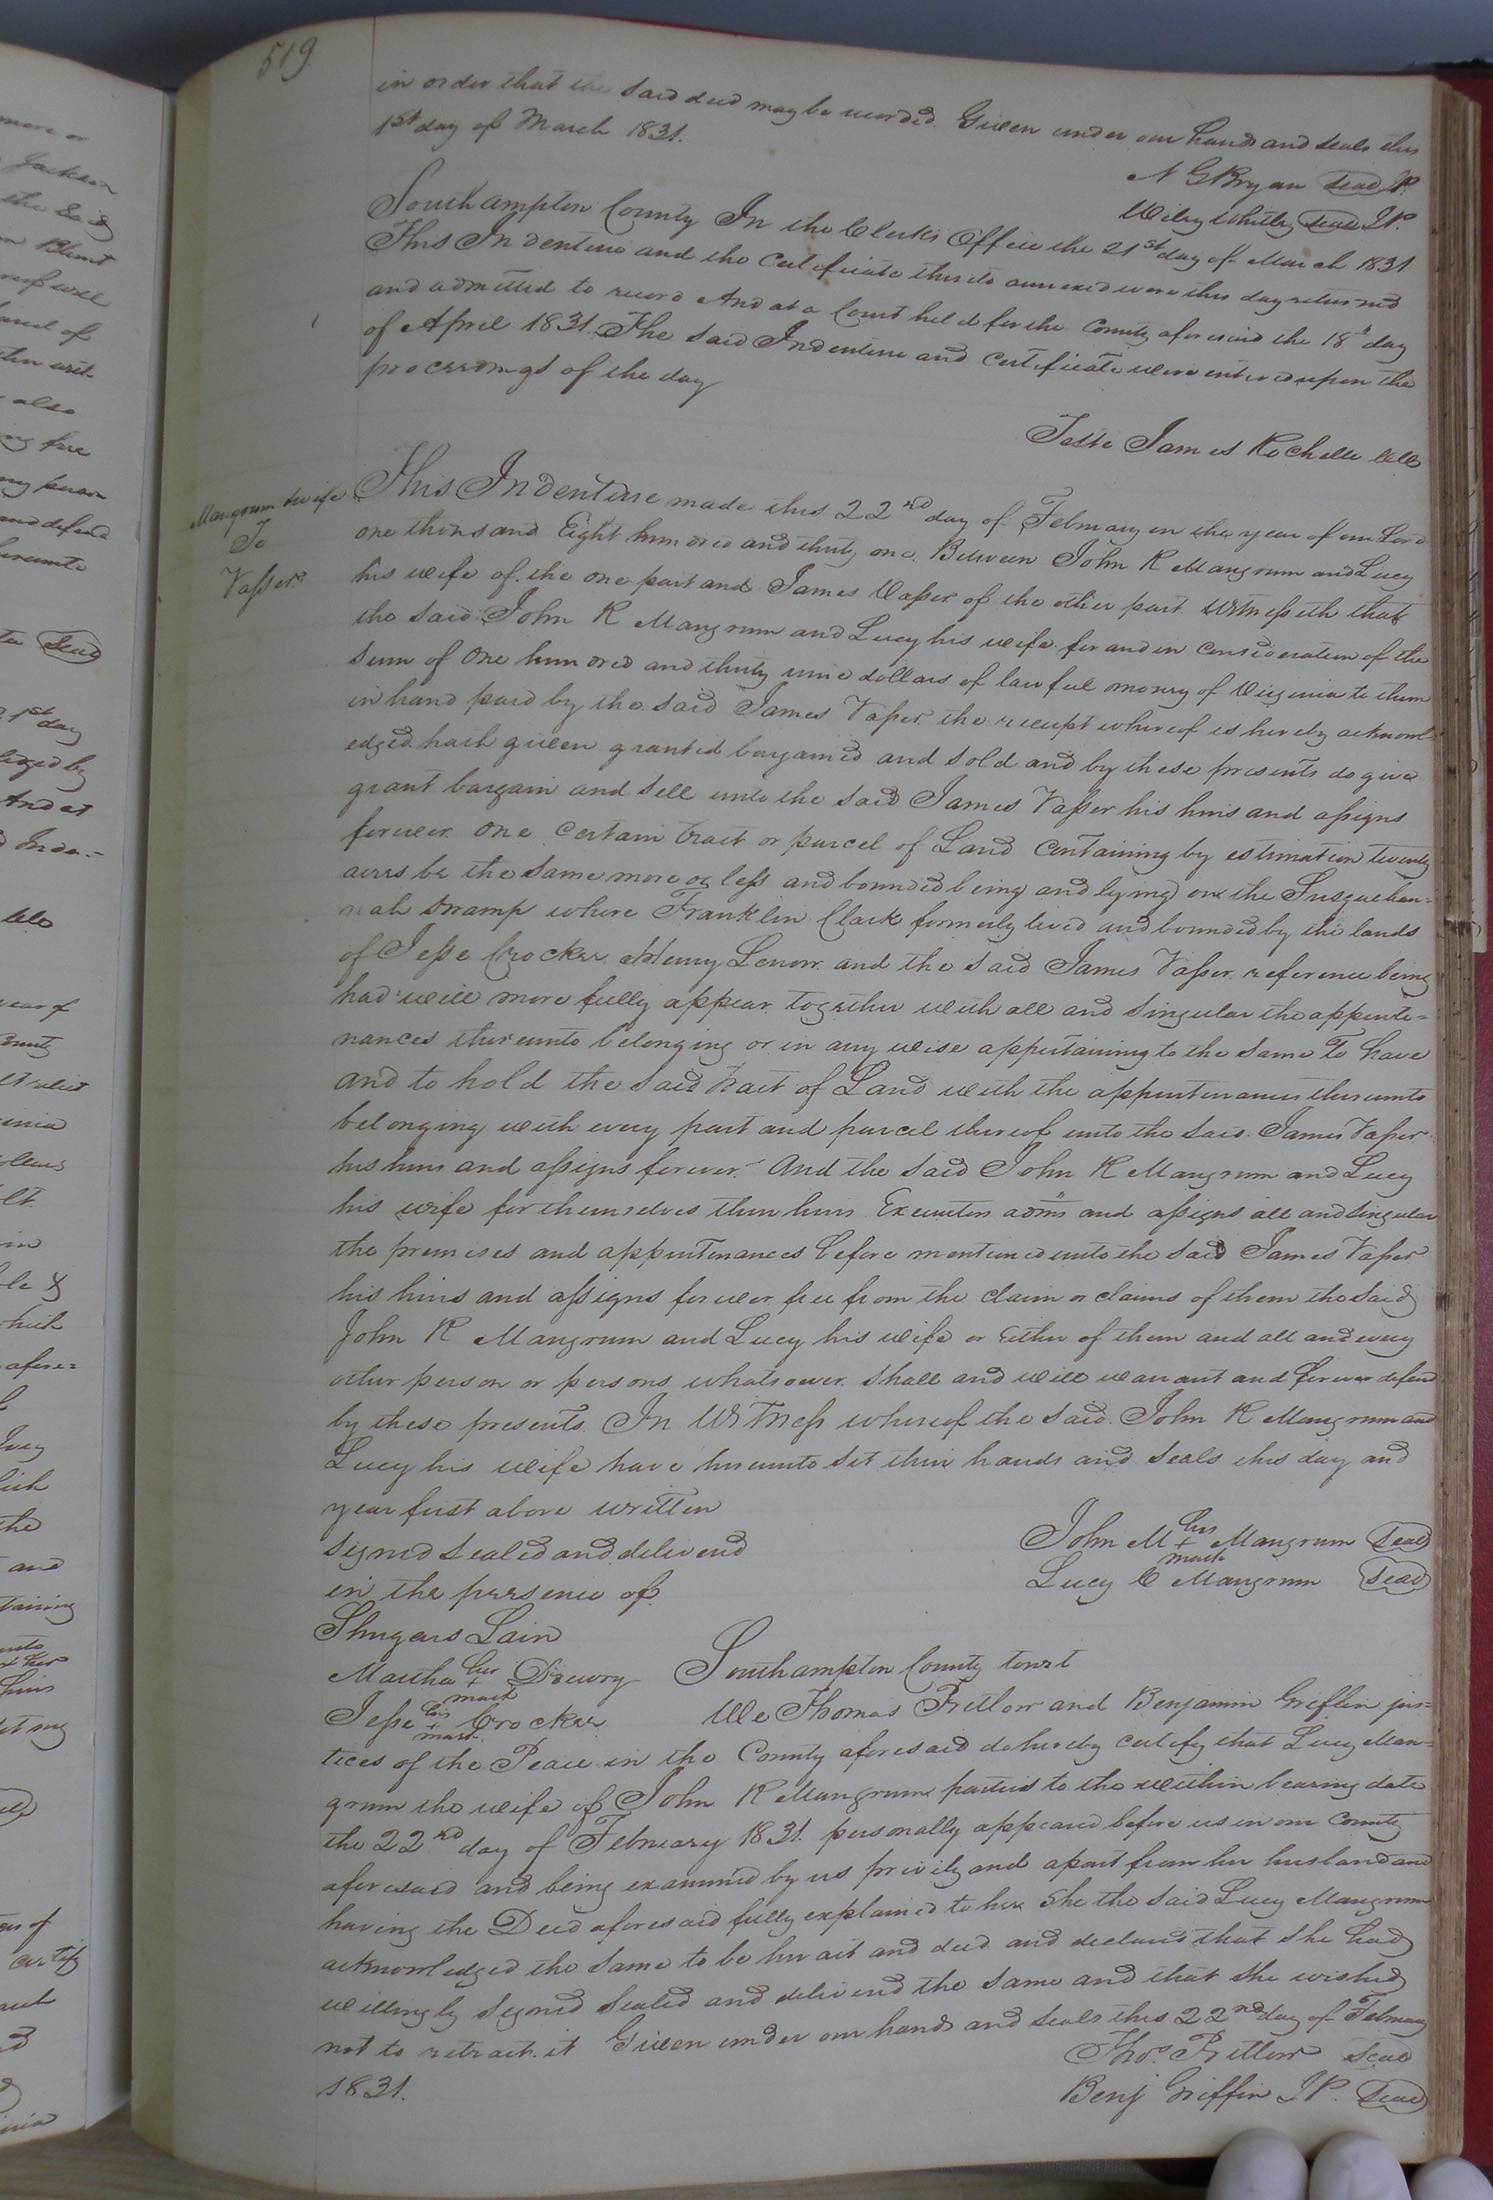 519.
in order that the said deed may be recorded. Given under our hands and seals this
1st day of March 1831.
N G Bryan Seal JP.
Wiley Whitley Seal JP.
Southampton County In the Clerks Office the 21st day of March 1831
This Indenture and the Certificate thereto annexed were this day returned
and admitted to record And at a Court held for the County aforesaid the 18th day
of April 1831. The said Indenture and Certificate were entered upon the
proceedings of the day
Teste James Rochelle
Mangrum & wife
To
Vasser
This Indenture made this 22nd day of February in the year of our Lord
one thousand Eight hundred and thirty one. Between John R Mangrum and Lucy
his wife of the one part and James Vasser of the other part. Witnesseth that
the said John R Mangrum and Lucy his wife for and in consideration of the
Sum of One hundred and thirty nine dollars of lawful money of Virginia to them
in hand paid by the said James Vasser the receipt whereof is hereby acknowl-
edged hath given granted bargained and sold and by these presents do give
grant bargain and sell unto the said James Vasser his heirs and assigns
forever One Certain tract or parcel of Land Containing by estimation twenty
acres be the same more or less and bounded being and lying on the Susquehan=
nah Swamp where Franklin Clark formerly lived and bounded by the lands
of Jesse Crocker Henry Lenow and the said James Vasser reference being
had will more fully appear together with all and singular the appurte=
nances thereunto belonging or in any wise appertaining to the same To have
and to hold the said tract of Land with the appurtenances thereunto
belonging with every part and parcel thereof unto the said James Vasser
his heirs and assigns forever. And the said John R Mangrum and Lucy
his wife for themselves their heirs Executors adms and assigns all and singular
the premises and appurtenances before mentioned unto the said James Vasser
his heirs and assigns forever free from the claim or claims of them the said
John R Mangrum and Lucy his wife or Either of them and all and every
other person or persons whatsoever shall and will warrant and forever defend
by these presents. In Witness whereof the said John R Mangrum and
Lucy his wife have hereunto set their hands and seals this day and
year first above written
Signed Sealed and delivered
in the presence of
John M his + mark Mangrum Seal
Lucy C Mangrum Seal
Shugars Lain
Martha her + mark Drewry
Jesse his + mark Crocker
Southampton County towit
We Thomas Pretlow and Benjamin Griffin jus=
tices of the Peace in the County aforesaid do hereby certify that Lucy Man=
grum the wife of John R Mangrum parties to the within bearing date
the 22nd day of February 1831. personally appeared before us in our County
aforesaid and being examined by us privily and apart from her husband and
having the Deed aforesaid fully explained to her She the said Lucy Mangrum
acknowledged the same to be her act and deed and declared that She had
willingly Signed Sealed and delivered the same and that She wished
not to retract it Given under our hands and seals this 22nd day of February
1831.
Thos. Pretlow Seal
Benj Griffin JP. Seal